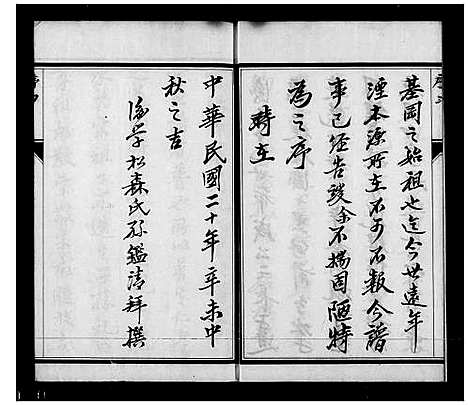 基岡之始祖也迄今世遠年
湮本源所在不可不報今譜
事已經告竣余不揣固陋特
為之序
時在
中華民國二十年辛未中
秋之吉
後學松森氏孫鑑清拜撰